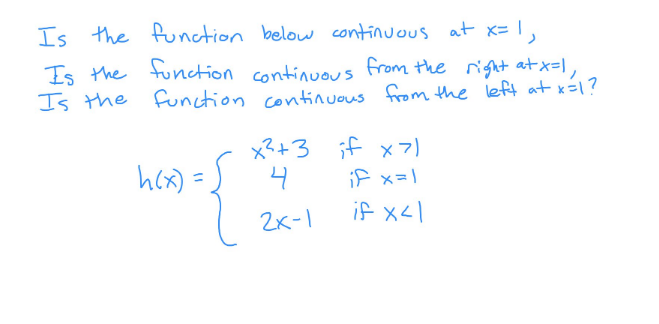 Is the function below continuous at x=1,
Is the function continuous from the right at x=1,
Is the function continuous from the left at x=1?
x²+3 if x>1
h(x) = { 4 if x=1
2x-1 if x<1